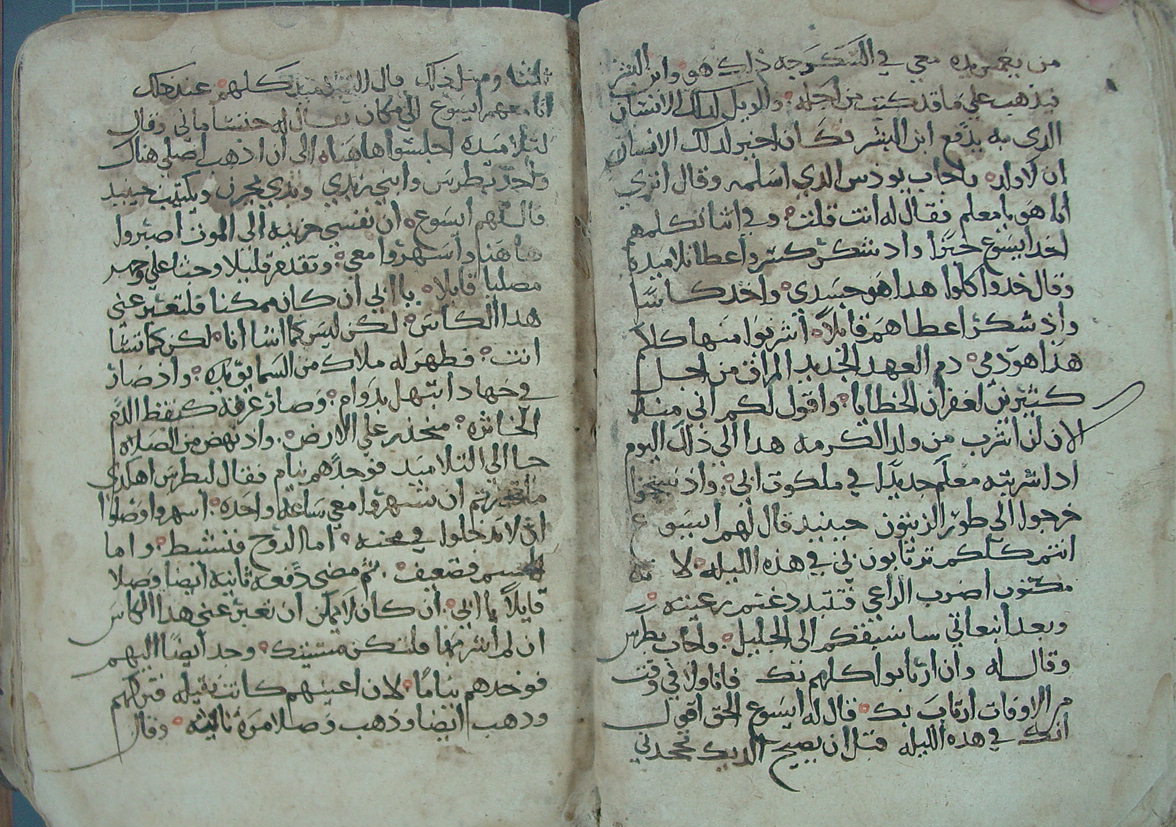 من يغمس يده معي في السكرجه ذلك هو وابن البشر
فيذهب علي ما قد كتب من اجله والويل لذلك الانسان
الذي به يدفع ابن البشر فكان اخير لذلك الانسان
ان لا ولد فاجاب يودس الذي اسلمه وقال اتري
انا هو يا معلم فقال له انت قلت وفي اثنا كلمهم
اخذ ايسوع خبزا واذ شكر كسر واعطا تلاميذه
وقال خدوا كلوا هدا هو جسدي واخد كاسا
واذ شكر اعطاهم قايلا اشربوا منها كلكم
هذا هو دمي دم العهد الجديد المراق من اجل
كثيرين لغفران الخطايا واقول لكم اني منذ
الان لن اشرب من ولد الكرمه هدا الي ذلك اليوم
ادا شربته معكم جديدا في ملكوت ابي واذ سبحوا
خرجوا الي طور الزيتون حينيد قال لهم ايسوع
انتم كلكم ترتابون بي في هذه الليله لانه
مكتوب اضرب الراعي فتتبدد غنم رعيته
وبعد انبعاثي ساسبقكم الي الجليل واجاب بطرس
وقال له وان ارتابوا كلهم بك فانا ولا في وقت
من الاوقات ارتاب بك قال له ايسوع الحق اقول
انك في هده الليله قبل ان يصيح الديك تجحدني
ثلثا ومثل ذلك قال التلاميد كلهم عند ذلك
اتا معهم ايسوع الي مكان يقال له جتسمانى وقال
لتلاميده اجلسوا هاهنا الي ان اذهب اصلي هناك
واخد بطرس وابني زبدي وبدي يحزن ويكتيب حينيد
قال لهم ايسوع ان نفسي حزينه الي الموت اصبروا
هاهنا واسهروا معي وتقدم قليلا وجثا علي وجهه
مصليا قايلا يا ابي ان كان ممكنا فلتعبر عني
هدا الكاس لكن ليس كما اشا انا لكن كما تشا
انت فظهر له ملاك من السما يقويه واذ صار
في جهاد ابتهل بدوام وصار عرقه كنقط الدم
الخاثره منحدر علي الارض واد نهض من الصلاه
جا الي التلاميد فوجدهم نيام فقال لبطرس اهكدي
ما قدرتم ان تسهروا معي ساعه واحده اسهروا وصلوا
ان لا تدخلوا في محنه اما الروح فنشيط واما
الجسم فضعيف ثم مضي دفعه ثانيه ايضا وصلا
قايلا يا ابي ان كان لا يمكن ان تعبر عني هدا الكاس
ان لم اشربها فلتكن مشيتك وجا ايضا اليهم
فوجدهم نياما لان اعينهم كانت ثقيله فتركهم
ودهب ايضا وذهب وصلا مرة ثالثه وقال